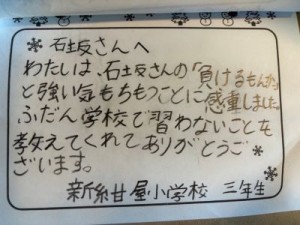 石坂さんへ
わたしは、石坂さんの「負けるもんかっ」
と強い気もちもつことに感動しました。
ふだん学校で習わないことを
教えてくれてありがとうご
ざいます。
新糸甘屋小学校 三年生